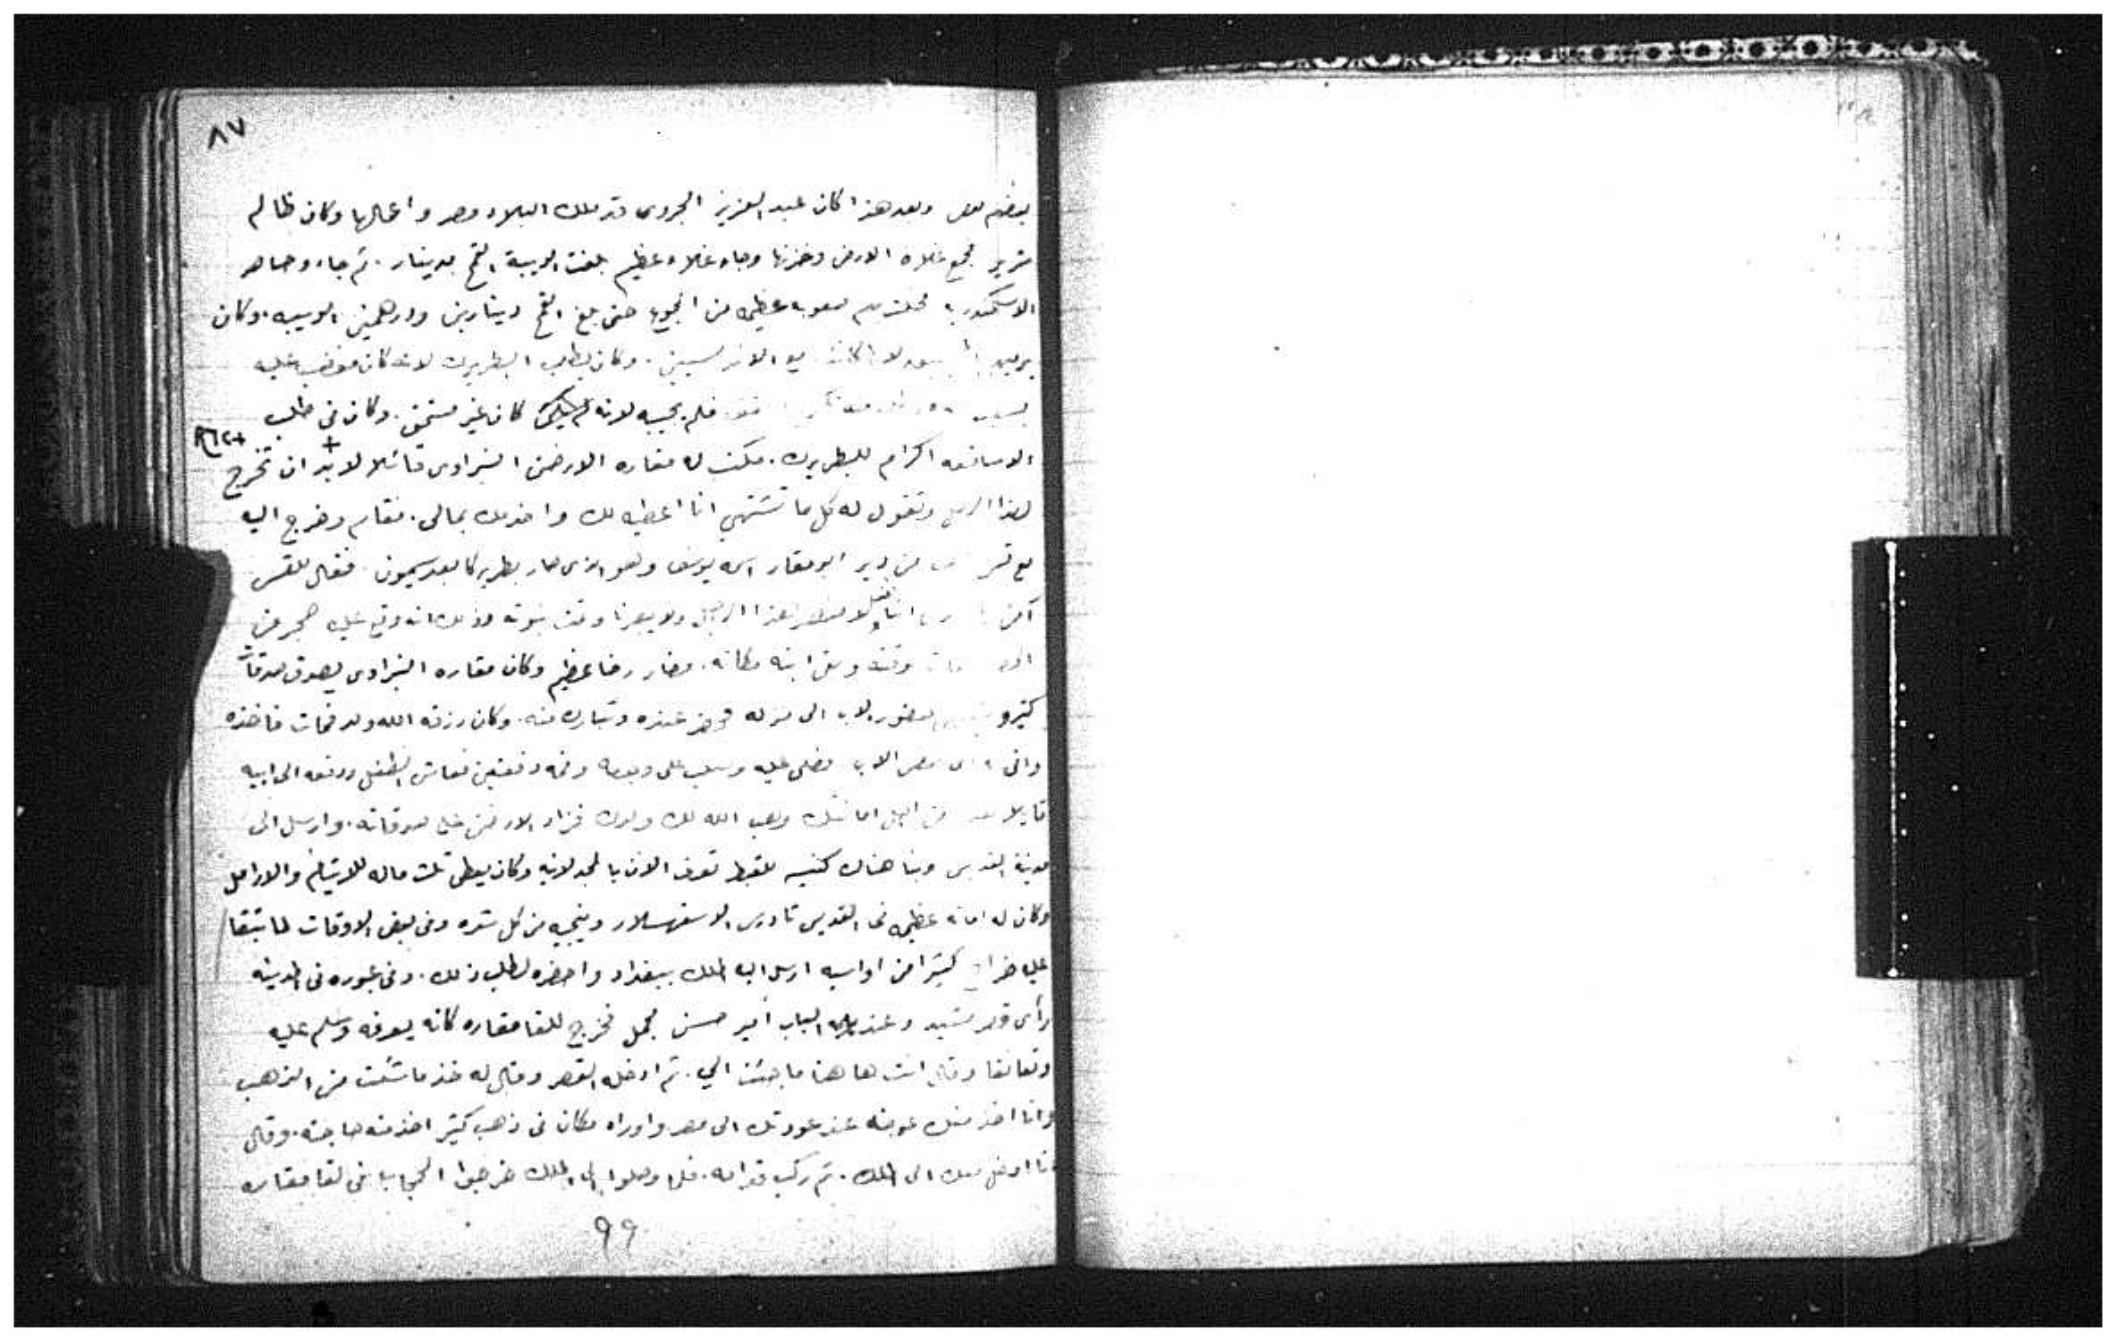 ٨٧
بعضهم بعض وبعد هذا كان عبد العزيز الجروى قد ملك البلاد مصر واعمالها وكان ظالم
شرير فجمع غلاة الارض وخزنها وجاء غلاء عظيم بلغت الويبة القمح بدينار. ثم جاء وحاصر
الاسكندرية فحلت بهم صعوبه عظيمه من الجوع حتى بلغ القمح دينارين ودرهمين الويبه. وكان
يريد الاندلسيين. وكان يطلب البطريرك لانه كان مغضب عليه
بسبب فلم يجيبه لانه كان غير مستحق. وكان فى طلب
الاساقفه اكرام للبطريرك. فكتب له مقاره الارخن النبراوى قائلا لا بد ان تخرج
لهذا الرجل وتقول له كل ما تشتهي انا اعطيه لك واخدمك بمالى. فقام وخرج اليه
مع قس من دير ابو مقار اسمه يوسف وهو الذى صار بطريركا بعد سيمون. فقال للقس
آمن لا هذا الرجل ولا يبصرنا وتمت نبوته وذلك انه وقع عليه حجر من
وقته وبقى ابنه مكانه. فصار رخا عظيم وكان مقاره النبراوى يصدق صدقات
كثير وحضور الاب الى منزله فحضر عنده وتبارك منه. وكان رزقه الله ولد فمات فاخذه
واتى الاب فصلى عليه وصلب على وجهه وفمه دفعتين فعاش الطفل ودفعه الى ابيه
قايلا من اجل امانتك وهب الله لك ولدك فزاد الارخن على صدقاته. وارسل الى
مدينة القدس وبنا هناك كنيسه للقبط تعرف الان بالمجدلانيه وكان يعطى تلت ماله للايتام والارامل
وكان له امانه عظيمه فى القديس تادرس الاسفهسلار وينجيه من كل شده وفى بعض الاوقات لما تبقا
عليه خراج كثيرا من اواسيه ارسل اليه الملك ببغداد واحضره لطلب ذلك. وفى عبوره فى المدينه
رأى قصر مشيد وعند الباب أمير حسن مجمل فخرج للقا مقاره كانه يعرفه وسلم عليه
وتعانقا وقال انت هاهنا ما جئت الي. ثم ادخله القصر وقال له خذ ما شئت من الذهب
وانا اخذ منك عوضه عند عودتك الى مصر واوراه مكان فى ذهب كثير اخذ منه حاجته. وقال
انا ادخل معك الى الملك. ثم ركب قدامه. فلما وصلوا الى الملك خرجوا الحجاب فى لقا مقاره
٩٩